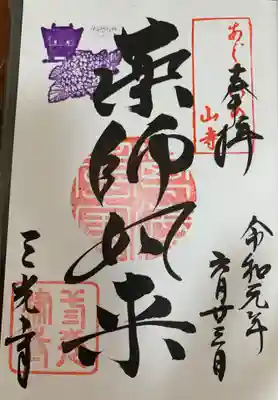 奉拝
あじさいの
山寺
令和元年
六月廿三日
薬師如来
三光寺